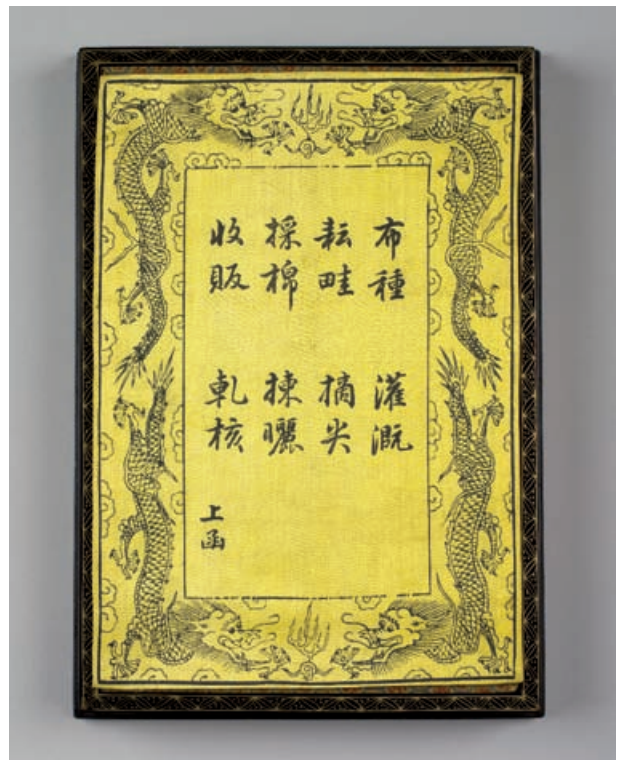 布種 灌溉
耘畦 摘尖
採棉 揀曬
收販 軋核 上函